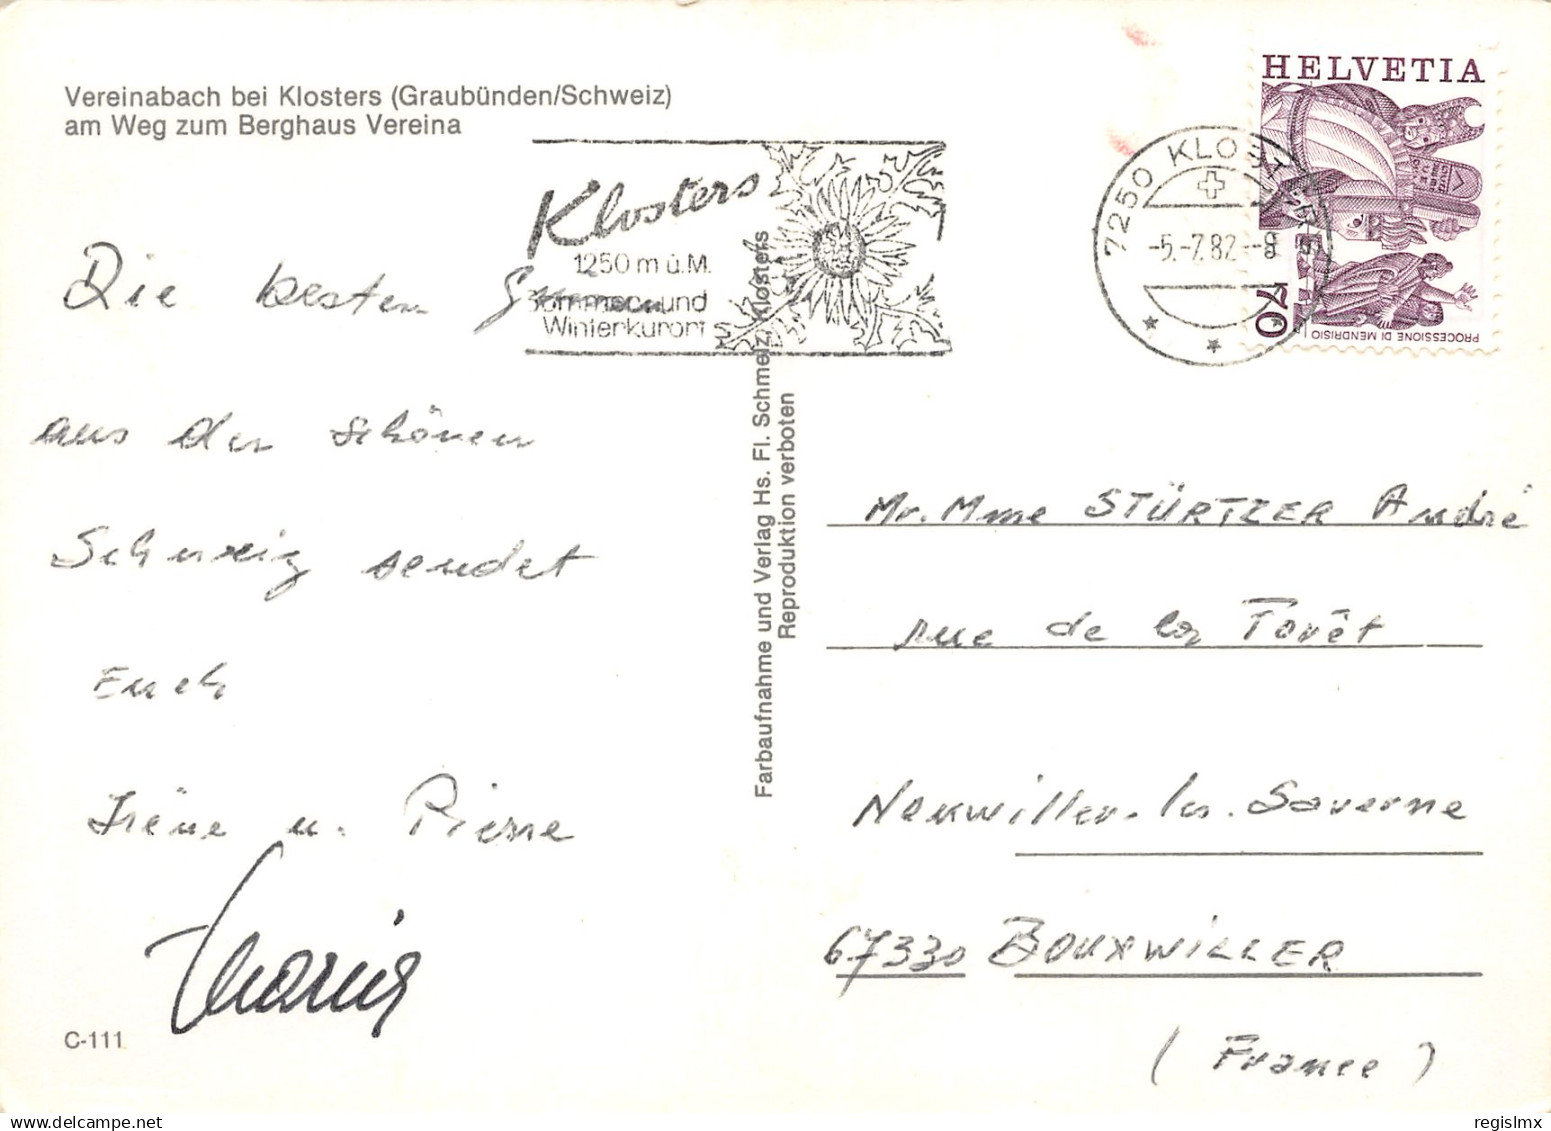 Vereinabach bei Klosters (Graubünden/Schweiz)
am Weg zum Berghaus Vereina
Klosters
1250 m ü.M.
Sommer- und
Winterkurort
7250 KLOSTERS
-5.-7.82--8
HELVETIA
70
PROCESSIONE DI MENDRISIO
Die besten
aus der schönen
Schweiz sendet
Euch
Irène u. Pierre
Farbaufnahme und Verlag Hs. Fl. Schmelz, Klosters
Reproduktion verboten
Mr. Mme STÜRTZER André
rue de la Forêt
Neuwiller-les-Saverne
67330 BOUXWILLER
(France)
C-111
regislmx